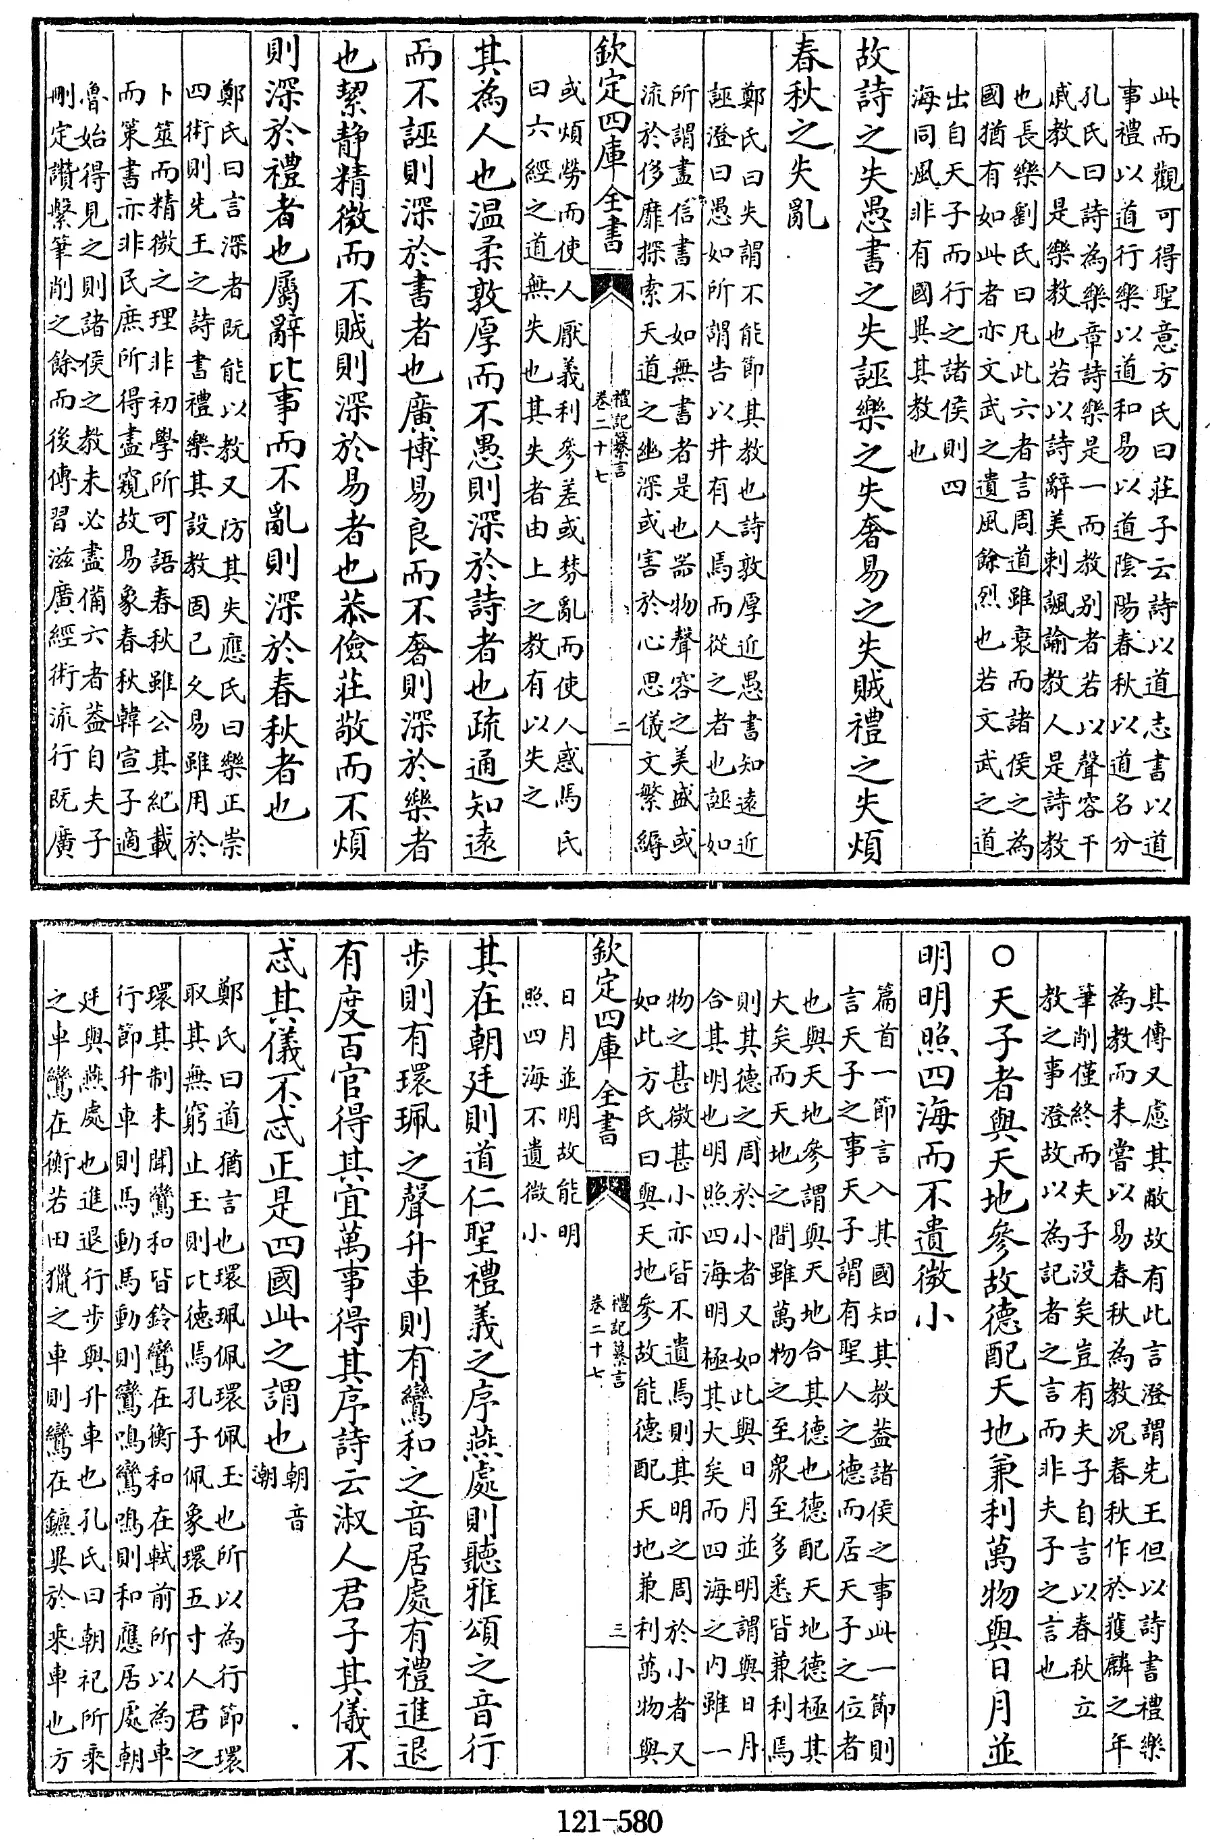 此而觀可得聖意方氏曰莊子云詩以道志書以道
事禮以道行樂以道和易以道陰陽春秋以道名分
孔氏曰詩為樂章詩樂是一而教别者若以聲容干
戚教人是樂教也若以詩辭美刺諷諭教人是詩教
也長樂劉氏曰凡此六者言周道雖衰而諸侯之為
國猶有如此者亦文武之遺風餘烈也若文武之道
出自天子而行之諸侯則四
海同風非有國異其教也
故詩之失愚書之失誣樂之失奢易之失賊禮之失煩
春秋之失亂
鄭氏曰失謂不能節其教也詩敦厚近愚書知遠近
誣澄曰愚如所謂告以井有人焉而從之者也誣如
所謂盡信書不如無書者是也器物聲容之美盛或
流於侈靡探索天道之幽深或害於心思儀文繁縟
欽定四庫全書
禮記纂言
卷二十七
二
或煩勞而使人厭義利參差或棼亂而使人惑馬氏
曰六經之道無失也其失者由上之教有以失之
其為人也温柔敦厚而不愚則深於詩者也疏通知遠
而不誣則深於書者也廣博易良而不奢則深於樂者
也絜静精微而不賊則深於易者也恭儉莊敬而不煩
則深於禮者也屬辭比事而不亂則深於春秋者也
鄭氏曰言深者既能以教又防其失應氏曰樂正崇
四術則先王之詩書禮樂其設教固已久易雖用於
卜筮而精微之理非初學所可語春秋雖公其紀載
而策書亦非民庶所得盡窺故易象春秋韓宣子適
魯始得見之則諸侯之教未必盡備六者葢自夫子
刪定讚繫筆削之餘而後傳習滋廣經術流行既廣
其傳又慮其敝故有此言澄謂先王但以詩書禮樂
為教而未嘗以易春秋為教况春秋作於獲麟之年
筆削僅終而夫子没矣豈有夫子自言以春秋立
教之事澄故以為記者之言而非夫子之言也
○天子者與天地參故德配天地兼利萬物與日月並
明明照四海而不遺微小
篇首一節言入其國知其教葢諸侯之事此一節則
言天子之事天子謂有聖人之德而居天子之位者
也與天地參謂與天地合其德也德配天地德極其
大矣而天地之間雖萬物之至衆至多悉皆兼利焉
則其德之周於小者又如此與日月並明謂與日月
合其明也明照四海明極其大矣而四海之内雖一
物之甚微甚小亦皆不遺焉則其明之周於小者又
如此方氏曰與天地參故能德配天地兼利萬物與
欽定四庫全書
禮記纂言
卷二十七
三
日月並明故能明
照四海不遺微小
其在朝廷則道仁聖禮義之序燕處則聽雅頌之音行
步則有環珮之聲升車則有鸞和之音居處有禮進退
有度百官得其宜萬事得其序詩云淑人君子其儀不
忒其儀不忒正是四國此之謂也朝音
潮
鄭氏曰道猶言也環珮佩環佩玉也所以為行節環
取其無窮止玉則比德焉孔子佩象環五寸人君之
環其制未聞鸞和皆鈴鸞在衡和在軾前所以為車
行節升車則馬動馬動則鸞鳴鸞鳴則和應居處朝
廷與燕處也進退行步與升車也孔氏曰朝祀所乘
之車鸞在衡若田獵之車則鸞在鑣異於乘車也方
121-580